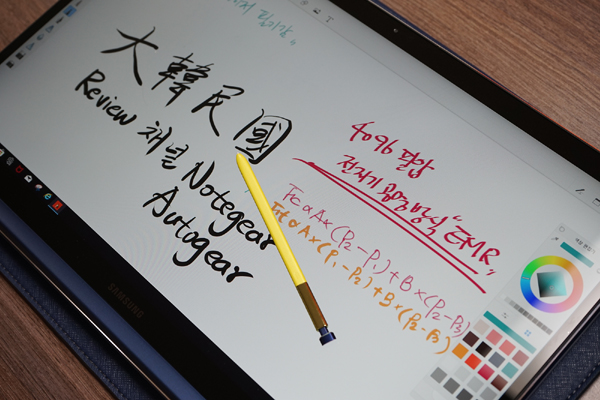 필기감"
大韓民國
Review 채널 Notegear
Autogear
4096 필압
전자기 공명 방식 "EMR"
Frc α A×(P2-P1)+B×(P2-P3)
Frt α A×(P1-P2)+B×(P2-P3)
SAMSUNG